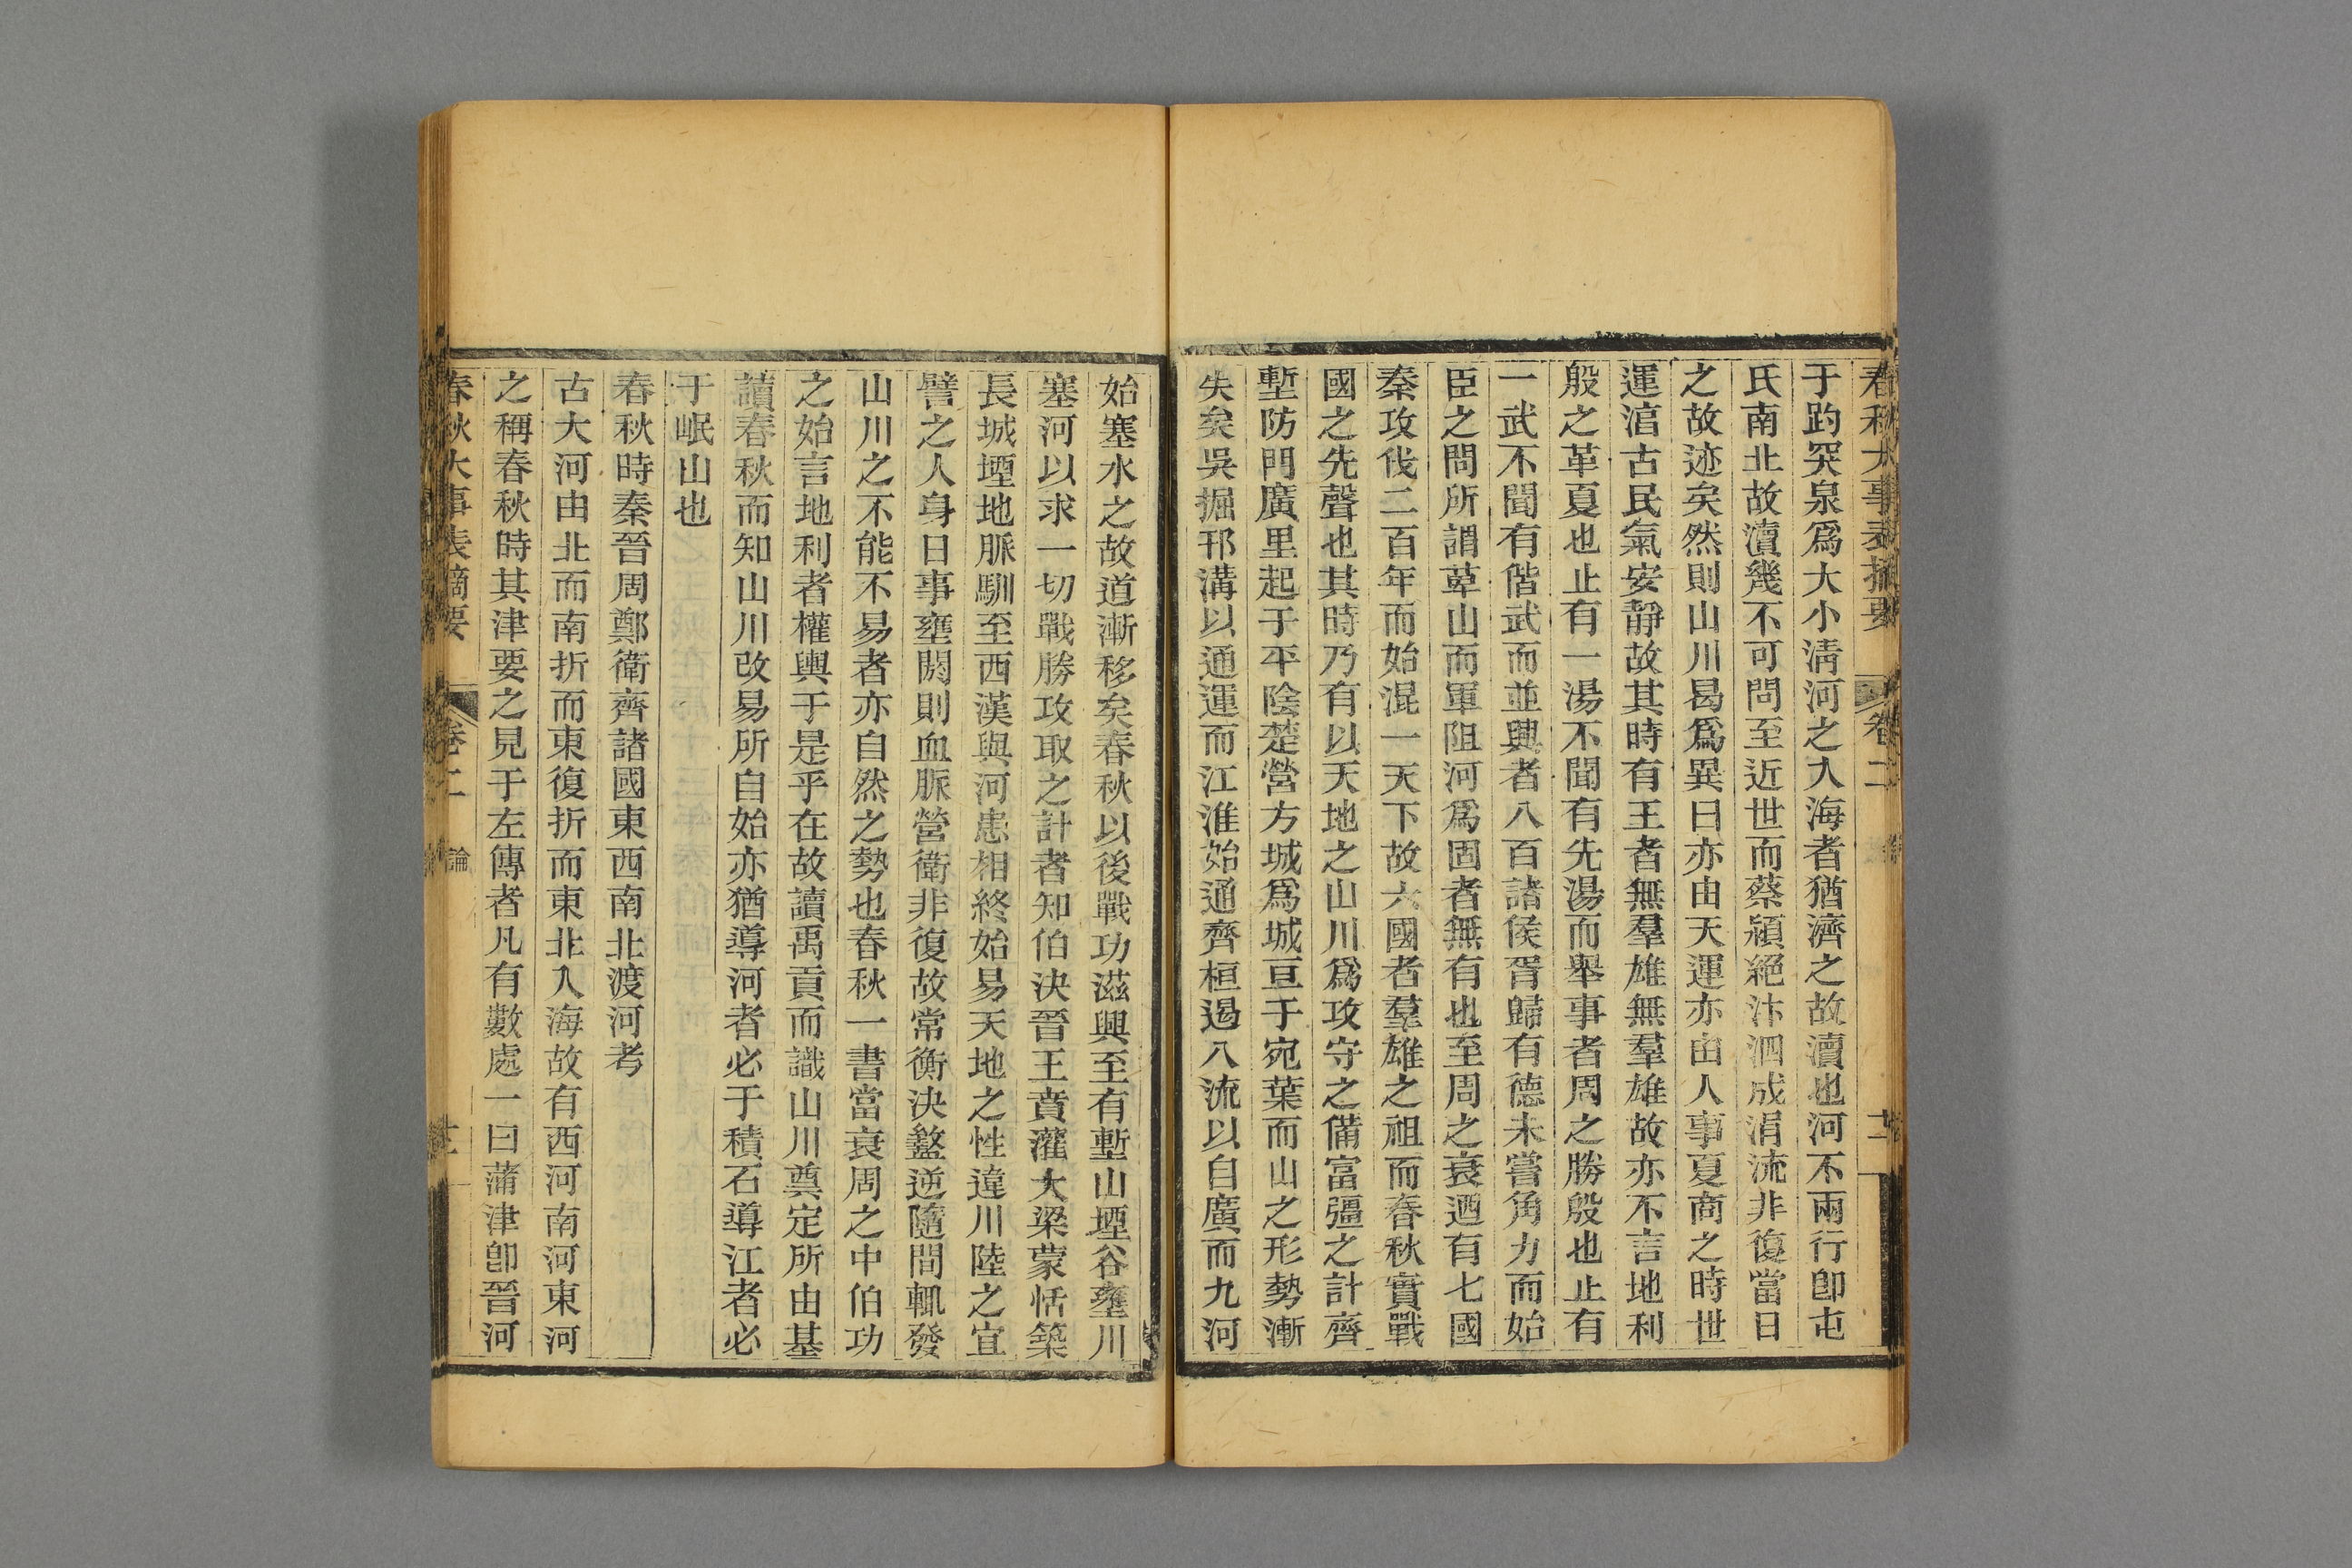 春秋大事表摘要 卷二 論 十二
于趵突泉爲大小淸河之入海者猶濟之故瀆也河不兩行卽屯
氏南北故瀆幾不可問至近世而蔡潁絕汴泗成涓流非復當日
之故迹矣然則山川曷爲異曰亦由天運亦由人事夏商之時世
運渟古民氣安靜故其時有王者無羣雄無羣雄故亦不言地利
殷之革夏也止有一湯不聞有先湯而舉事者周之勝殷也止有
一武不聞有偕武而並興者八百諸侯胥歸有德未嘗角力而始
臣之問所謂萆山而軍阻河爲固者無有也至周之衰迺有七國
秦攻伐二百年而始混一天下故六國者羣雄之祖而春秋實戰
國之先聲也其時乃有以天地之山川爲攻守之備富彊之計齊
塹防門廣里起于平陰楚營方城爲城亘于宛葉而山之形勢漸
失矣吳掘邗溝以通運而江淮始通齊桓遏八流以自廣而九河
始塞水之故道漸移矣春秋以後戰功滋興至有塹山堙谷壅川
塞河以求一切戰勝攻取之計者知伯決晉王賁灌大梁蒙恬築
長城堙地脈馴至西漢與河患相終始易天地之性違川陸之宜
譬之人身日事壅閼則血脈營衞非復故常衡決盭逆隨間輒發
山川之不能不易者亦自然之勢也春秋一書當衰周之中伯功
之始言地利者權輿于是乎在故讀禹貢而識山川奠定所由基
讀春秋而知山川改易所自始亦猶導河者必于積石導江者必
于岷山也
春秋時秦晉周鄭衞齊諸國東西南北渡河考
古大河由北而南折而東復折而東北入海故有西河南河東河
之稱春秋時其津要之見于左傳者凡有數處一曰蒲津卽晉河
春秋大事表摘要 卷二 論